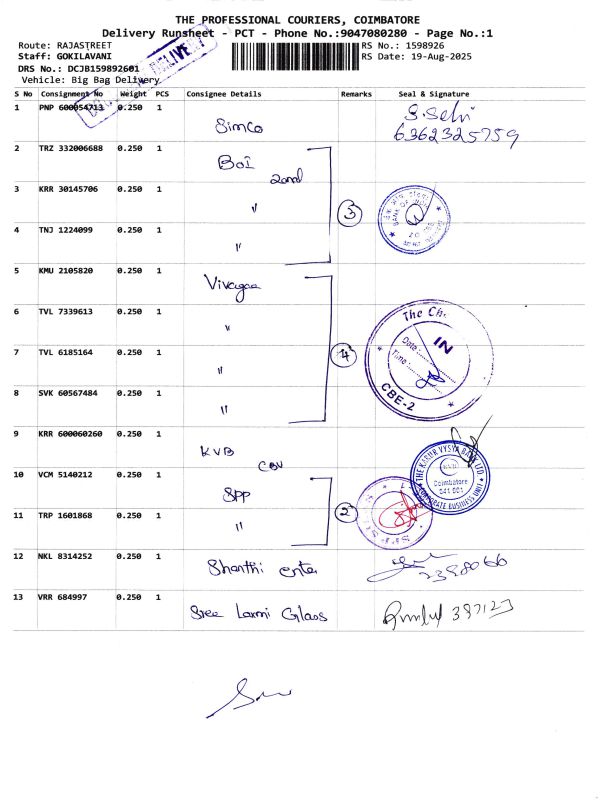 THE PROFESSIONAL COURIERS, COIMBATORE
Delivery Runsheet - PCT - Phone No.:9047080280 - Page No.:1
Route: RAJASTREET
Staff: GOKILAVANI
DRS No.: DCJB159892601
Vehicle: Big Bag Delivery
RS No.: 1598926
RS Date: 19-Aug-2025
S No Consignment No Weight PCS Consignee Details Remarks Seal & Signature
1 PNP 600054713 0.250 1 Simco S.Selvi 6362325759
2 TRZ 332006688 0.250 1 BoI 2nd
3 KRR 30145706 0.250 1 " 3
4 TNJ 1224099 0.250 1 "
5 KMU 2105820 0.250 1
6 TVL 7339613 0.250 1 " The Ch
7 TVL 6185164 0.250 1 " 4 Date Time IN
8 SVK 60567484 0.250 1 " CBE-2
9 KRR 600060260 0.250 1 KVB CBU
THE KARUR VYSYA BANK LTD
KVB
Coimbatore
641 001
CORPORATE BUSINESS UNIT
10 VCM 5140212 0.250 1 SPP
11 TRP 1601868 0.250 1 " 2
12 NKL 8314252 0.250 1 Shanthi enter
13 VRR 684997 0.250 1 Sree Laxmi Glass 387123